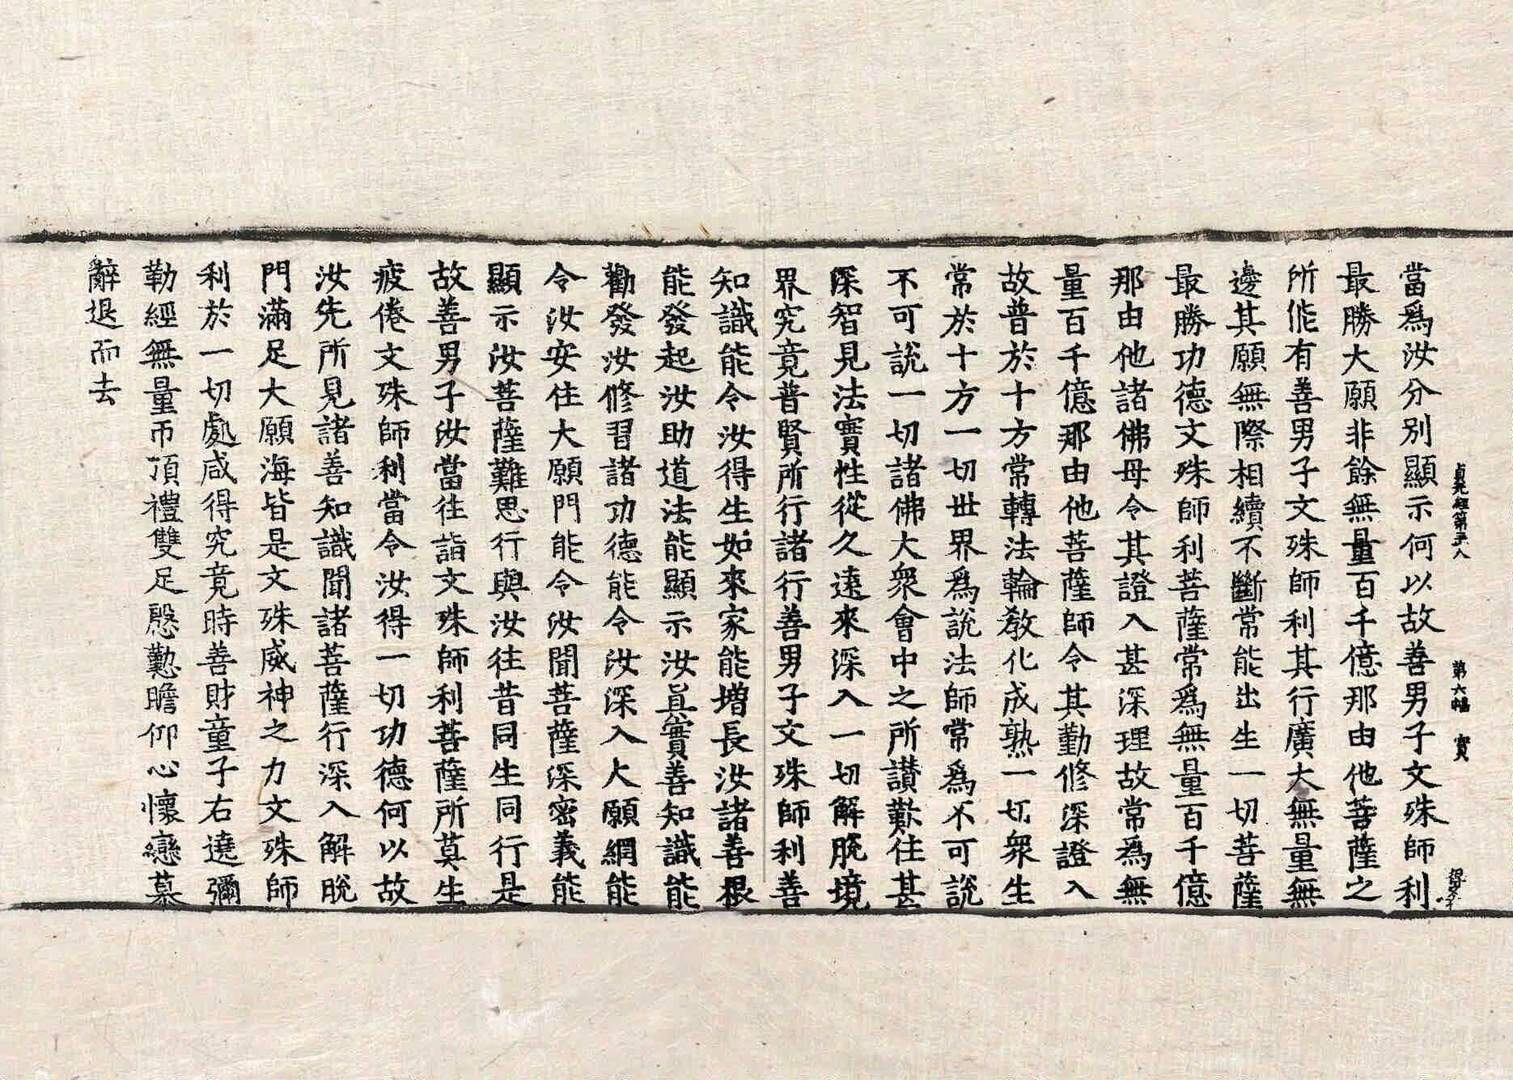 當爲汝分別顯示何以故善男子文殊師利
最勝大願非餘無量百千億那由他菩薩之
所能有善男子文殊師利其行廣大無量無
邊其願無際相續不斷常能出生一切菩薩
最勝功德文殊師利菩薩常爲無量百千億
那由他諸佛母令其證入甚深理故常爲無
量百千億那由他菩薩師令其勤修深證入
故普於十方常轉法輪教化成熟一切衆生
常於十方一切世界爲說法師常爲不可說
不可說一切諸佛大衆會中之所讃歎住甚
深智見法實性從久遠來深入一切解脫境
界究竟普賢所行諸行善男子文殊師利善
知識能令汝得生如來家能增長汝諸善根
能發起汝助道法能顯示汝眞實善知識能
勸發汝修習諸功德能令汝深入大願網能
令汝安住大願門能令汝聞菩薩深密義能
顯示汝菩薩難思行與汝往昔同生同行是
故善男子汝當往詣文殊師利菩薩所莫生
疲倦文殊師利當令汝得一切功德何以故
汝先所見諸善知識聞諸菩薩行深入解脫
門滿足大願海皆是文殊威神之力文殊師
利於一切處咸得究竟時善財童子右遶彌
勒經無量帀頂禮雙足慇懃瞻仰心懷戀慕
辭退而去
貞元經第三八 第六幅 實